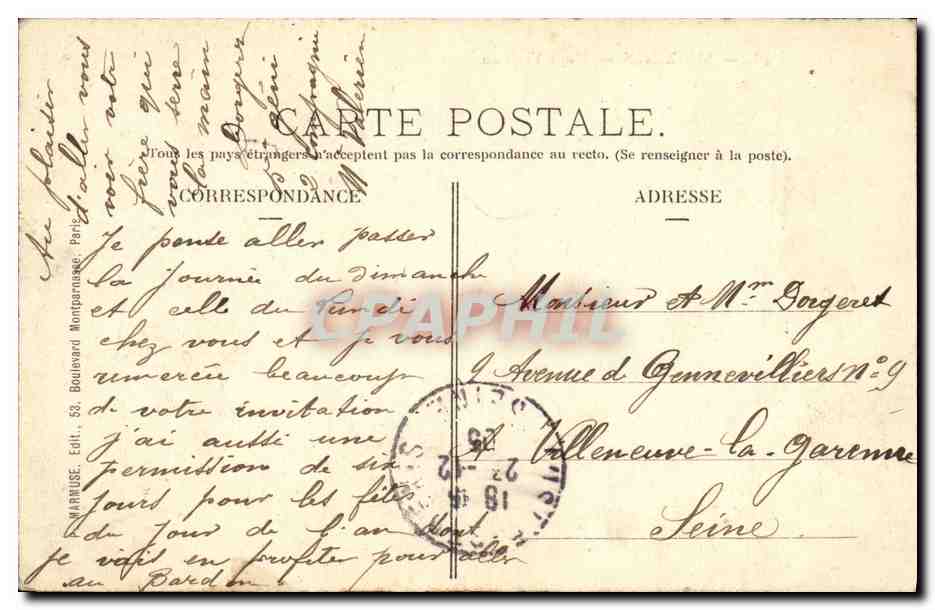 CARTE POSTALE.
Tous les pays étrangers n'acceptent pas la correspondance au recto. (Se renseigner à la poste).
CORRESPONDANCE
Je pense aller passer
la journée du dimanche
et celle du Lundi
chez vous et je vous
remercie beaucoup
de votre invitation
j'ai aussi une
permission de six
jours pour les fêtes
du jour de l'an dont
je vais en profiter pour aller
au
Au plaisir
d'aller vous
voir votre
frère qui
vous serre
la main
Dorgeret
5e Génie
2 Compagnie
Mt Valérien
ADRESSE
Monsieur et Mme Dorgeret
9 Avenue de Gennevilliers No 9
A Villeneuve-la-Garenne
Seine
MARMUSE, Edit., 53, Boulevard Montparnasse, Paris
CPAPHIL